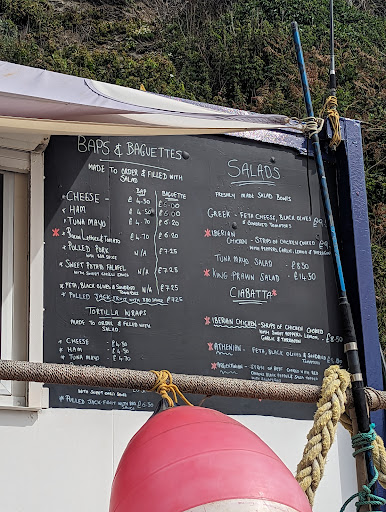 BAPS & BAGUETTES
MADE TO ORDER & FILLED WITH
SALAD
BAP BAGUETTE
CHEESE £4.30 £6.00
HAM £4.50 £6.00
TUNA MAYO £4.70 £6.20
BACON, LETTUCE & TOMATO £4.70 £6.20
PULLED PORK N/A £7.25
WITH BBQ SAUCE
SWEET POTATO FALAFEL N/A £7.25
WITH SWEET CHILLI SAUCE
FETA, BLACK OLIVES & SUNDRIED N/A £7.25
TOMATOES
PULLED JACK-FRUIT WITH BBQ SAUCE £7.25
TORTILLA WRAPS
MADE TO ORDER & FILLED WITH
SALAD
CHEESE
HAM
TUNA MAYO
WITH SWEET CHILLI SAUCE
PULLED JACK-FRUIT WITH BBQ £6.50
SALADS
FRESHLY MADE SALAD BOXES
GREEK - FETA CHEESE, BLACK OLIVES
& SUNDRIED TOMATOES
IBERIAN
CHICKEN - STRIPS OF CHICKEN COOKED
WITH SWEET PEPPER, LEMON & OREGANO
TUNA MAYO SALAD - £8.50
KING PRAWN SALAD - £14.50
CIABATTA
IBERIAN CHICKEN - STRIPS OF CHICKEN COOKED
WITH SWEET PEPPERS, LEMON,
GARLIC & OREGANO
ATHENIAN - FETA, BLACK OLIVES & SUNDRIED
TOMATOES
- STRIPS OF BEEF COOKED WITH RED